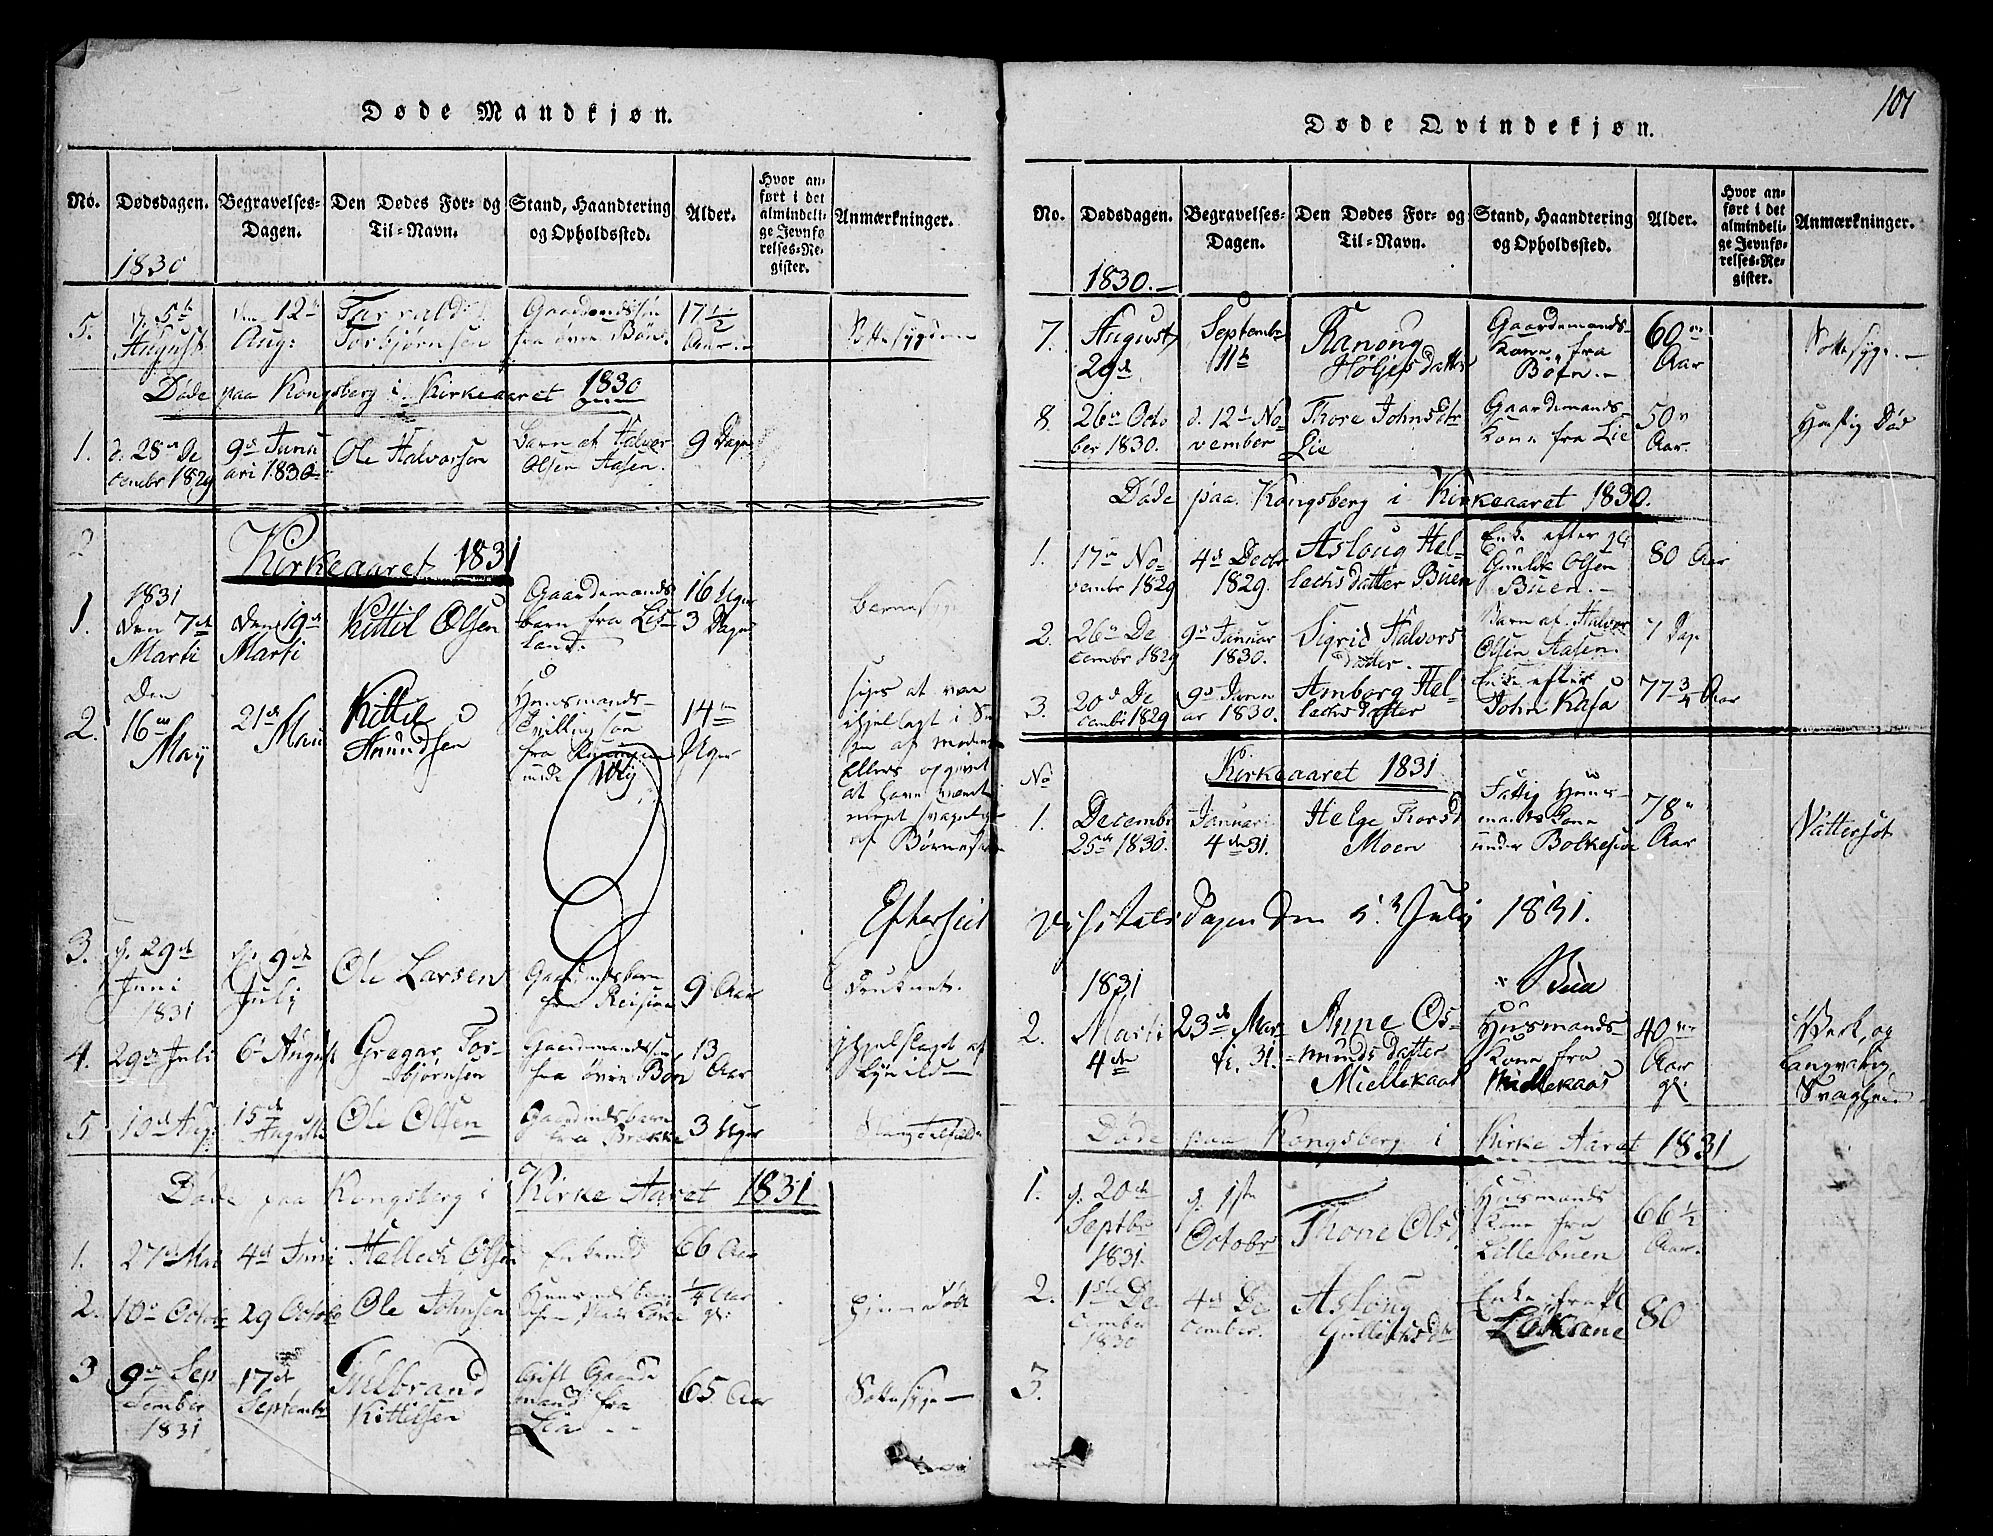 Døde Mandkjøn.
No.
Dødsdagen.
Begravelses-
Dagen.
Den Dødes For- og
Til-Navn.
Stand, Haandtering
og Opholdssted.
Alder.
Hvor an-
ført i det
almindeli-
ge Jevnfø-
relses-Re-
gister.
Anmærkninger.
1830
5.
d. 5te
August
den 12te
Aug:
Tarrald
Torbjørnsen
Gaardmandssøn
fra øvre Bøn
17 1/2
Aar.
Sottesygdom
Døde paa Kongsberg i Kirkeaaret 1830
1.
d. 28de De
cembr 1829
9de Janu
ari 1830
Ole Halvorsen
Barn af Halvor
Olsen Aasen.
9 Dage
Kirkeaaret 1831
1831
1.
den 7de
Marti
den 19de
Marti
Kittil Olsen
Gaardemands
barn fra Lis-
land.
16 Uger
3 Dage
Barnesyge
2.
Den
16de
May
21de
Mai
Kittil
Anundsen
Huusmands-
Tvilling søn
fra
14
Uger
siges at være
ihjellagt i
af moderen
Ellers opgivet
at have været
meget svagelig
af Børnesyge
Efterseet
3.
d. 29de
Juni
1831
d. 9de
July
Ole Larsen
Gaardmdsbarn
fra
9 Aar
Druknet.
4.
29de Juli
6te August
Gregar Tor-
bjørnsen
Gaardemandssøn
fra øvre Bøn
13
Aar
ihjelslaget af
Lynild
5
13de Aug:
15de
Augusti
Ole Olsen
Gaardmdsbarn
fra Brække
3 Uger
Døde paa Kongsberg i Kirke Aaret 1831
1.
27de Mai
4de Juni
Helleck Olsen
66 Aar
2.
10de Octobr
29 Octobr
Ole Johnsen
Huusmdsbarn
1/4 Aar
gl:
3
9de Sep
tember
1831
17de
Septembr
Gulbrand
Kittilsen
Gift Gaarde
mand fra
Lia
65 Aar
Sottesyge
101
Døde Qvindekjøn.
No.
Dødsdagen.
Begravelses-
Dagen.
Den Dødes For- og
Til-Navn.
Stand, Haandtering
og Opholdssted.
Alder.
Hvor an-
ført i det
almindeli-
ge Jevnfø-
relses-Re-
gister.
Anmærkninger.
1830.
7.
August
29de
Septembr
11te
Ranong
Høljesdatter
Gaardemands-
Kone fra
Bøen.
60
Aar
Sottesyge.
8.
26de Octo
ber 1830.
d. 12te No
vember
Thore Johnsdtr
Lie
Gaardemands-
Kone fra Lie
50
Aar.
Hastig Død
Døde paa Kongsberg i Kirkeaaret 1830.
1.
17de No-
vembr 1829
4de Decbr
1829.
Asloug Hel-
lechsdatter Buen
Enke efter
Gunlik Olsen
Buen.
80 Aar
2.
26de De
cembr 1829
9de Januar
1830.
Sigrid Halvors
datter.
Barn af Halvor
Olsen Aasen.
7 Dage
3.
20de De
cembr 1829
9de Janu
ar 1830.
Amborg Hel-
lechsdatter
Enke efter
John Kasa
77 3/4 Aar
Kirkeaaret 1831
No
1.
Decembr
25de 1830.
Januari
4de 31.
Helge Thorsd
Moen
Fattig Huus-
mandskone
under Bolkesiøe
78
Aar
Vattersot
Visitats Dagen den 5te July 1831.
Bua
1831
2.
Marti
4de
23de Mar
ti. 31.
Anne Os-
mundsdatter
Miellekaas
Huusmands
Kone fra
Miellekaas
40
Aar
gl:
Verk og
langvarig
Svaghed
Døde paa Kongsberg i Kirke Aaret 1831
1.
d. 20de
Septbr
1831.
d. 1ste
Octobr
Thone Olsd
Husmands
Kone fra
Lillebuen
66 1/2
Aar.
2.
1ste De
cember
1830
4de De
cember.
Aslong
Gullichsdtr
Enke fra Pl
Løkane
80
3.